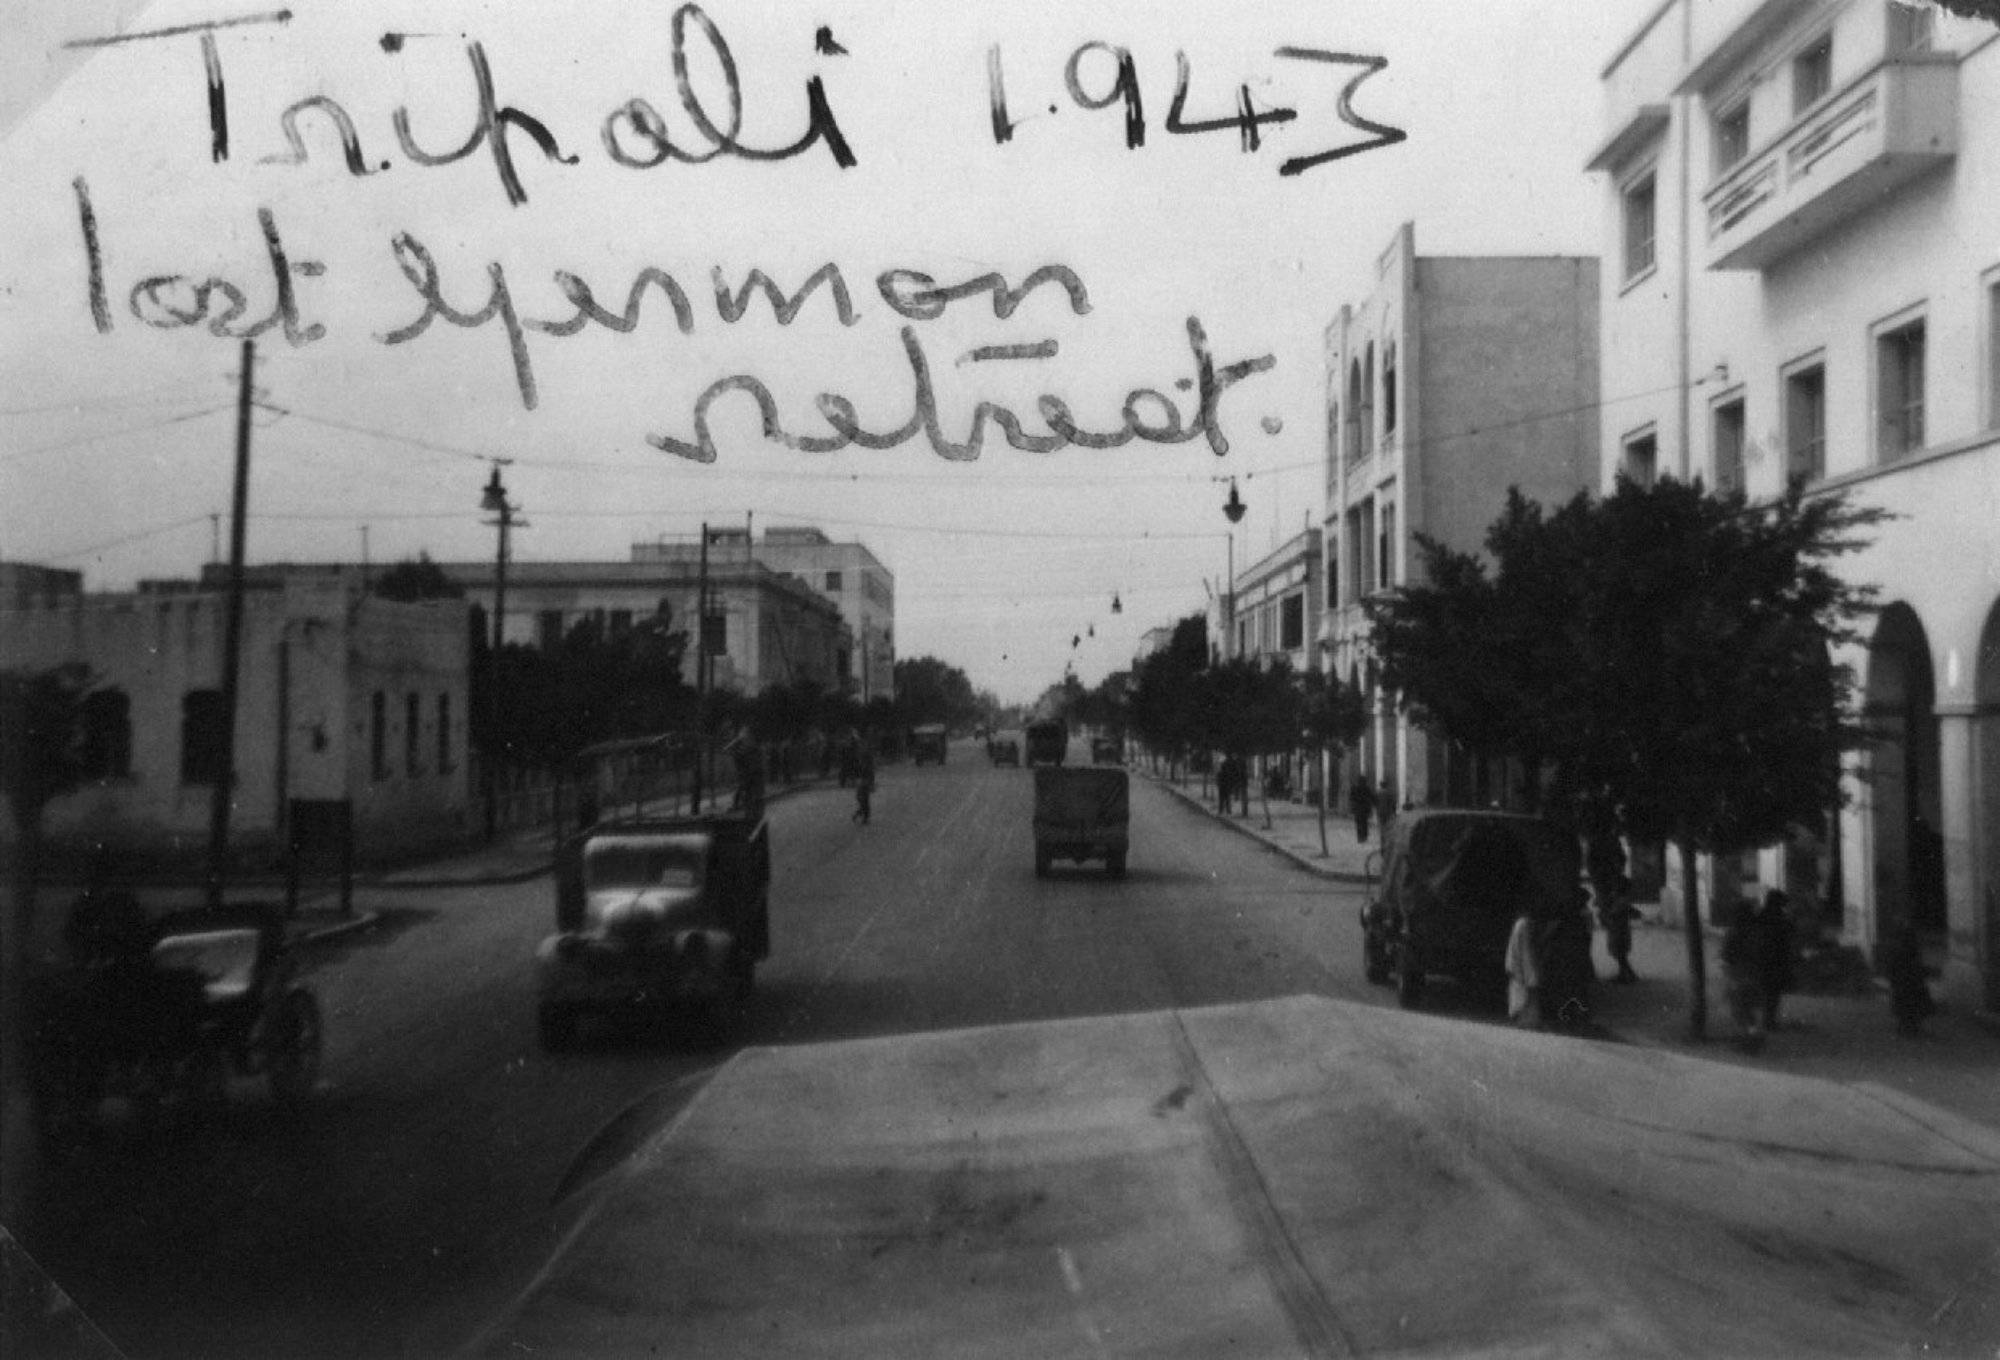 Tripoli 1.943
last German
retreat.